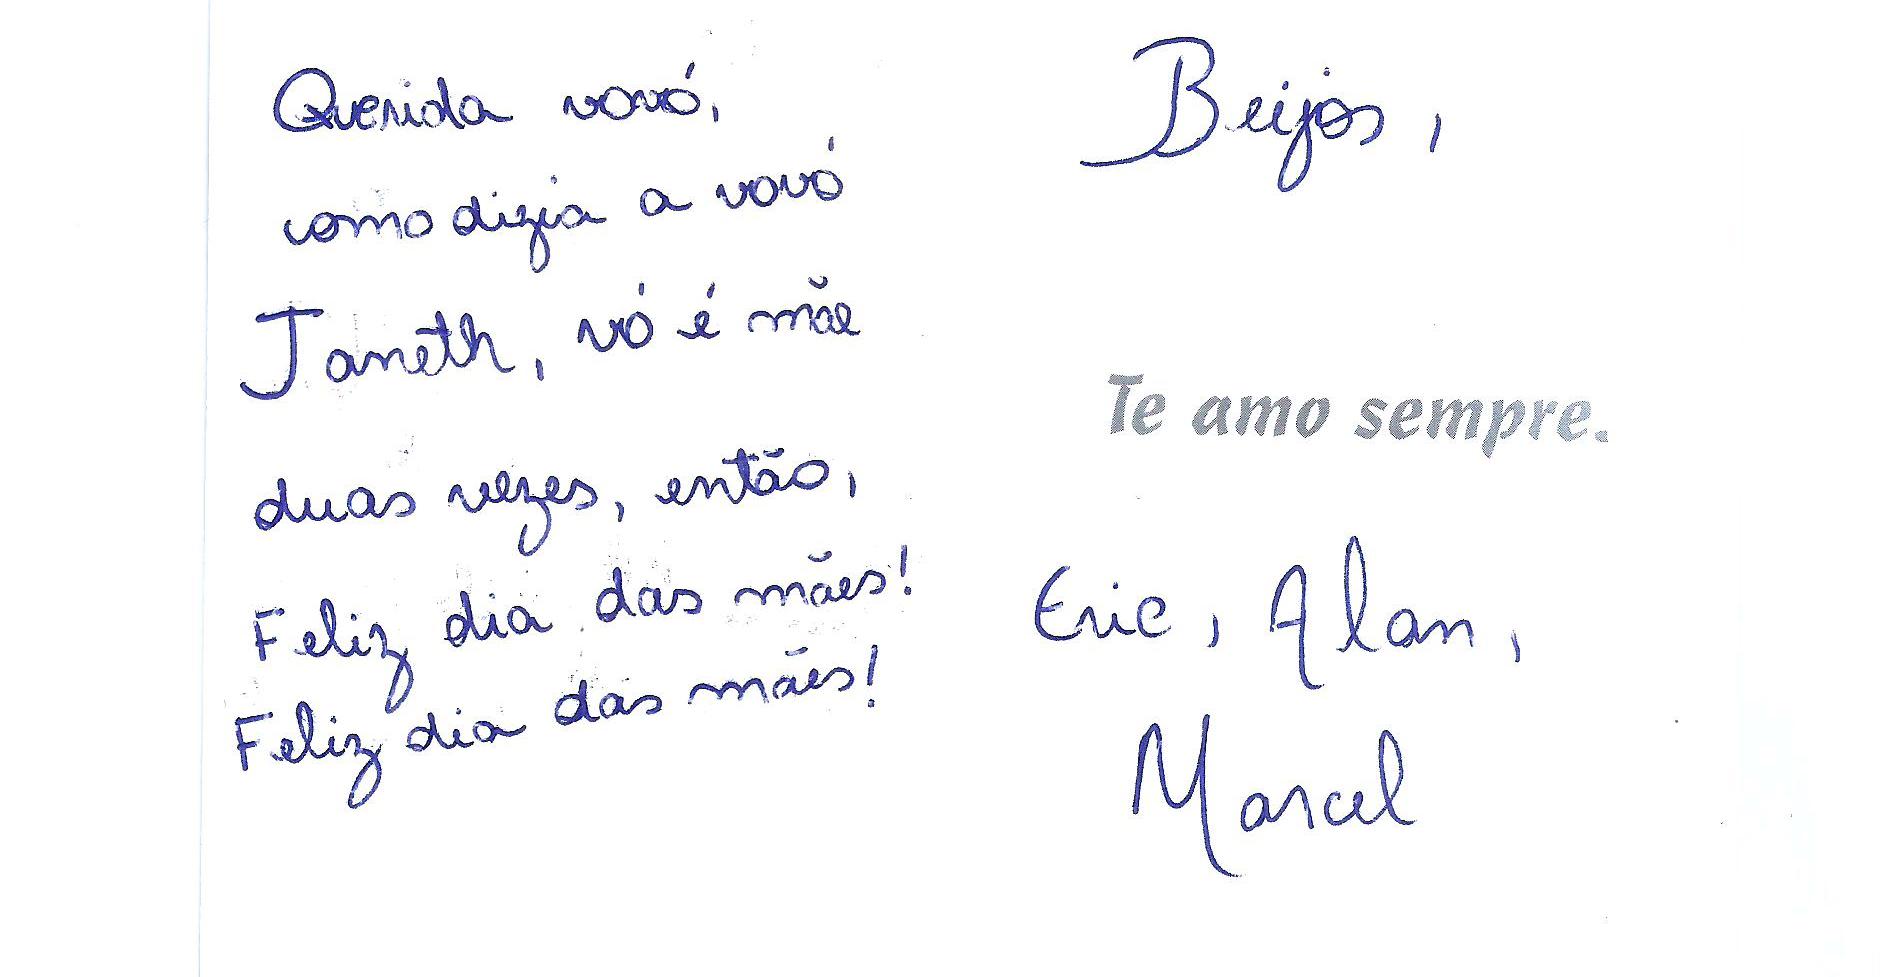 Querida vovó,
como dizia a vovó
Janeth, vó é mãe
duas vezes, então,
Feliz dia das mães!
Feliz dia das mães!
Beijos,
Te amo sempre.
Eric, Alan,
Marcel